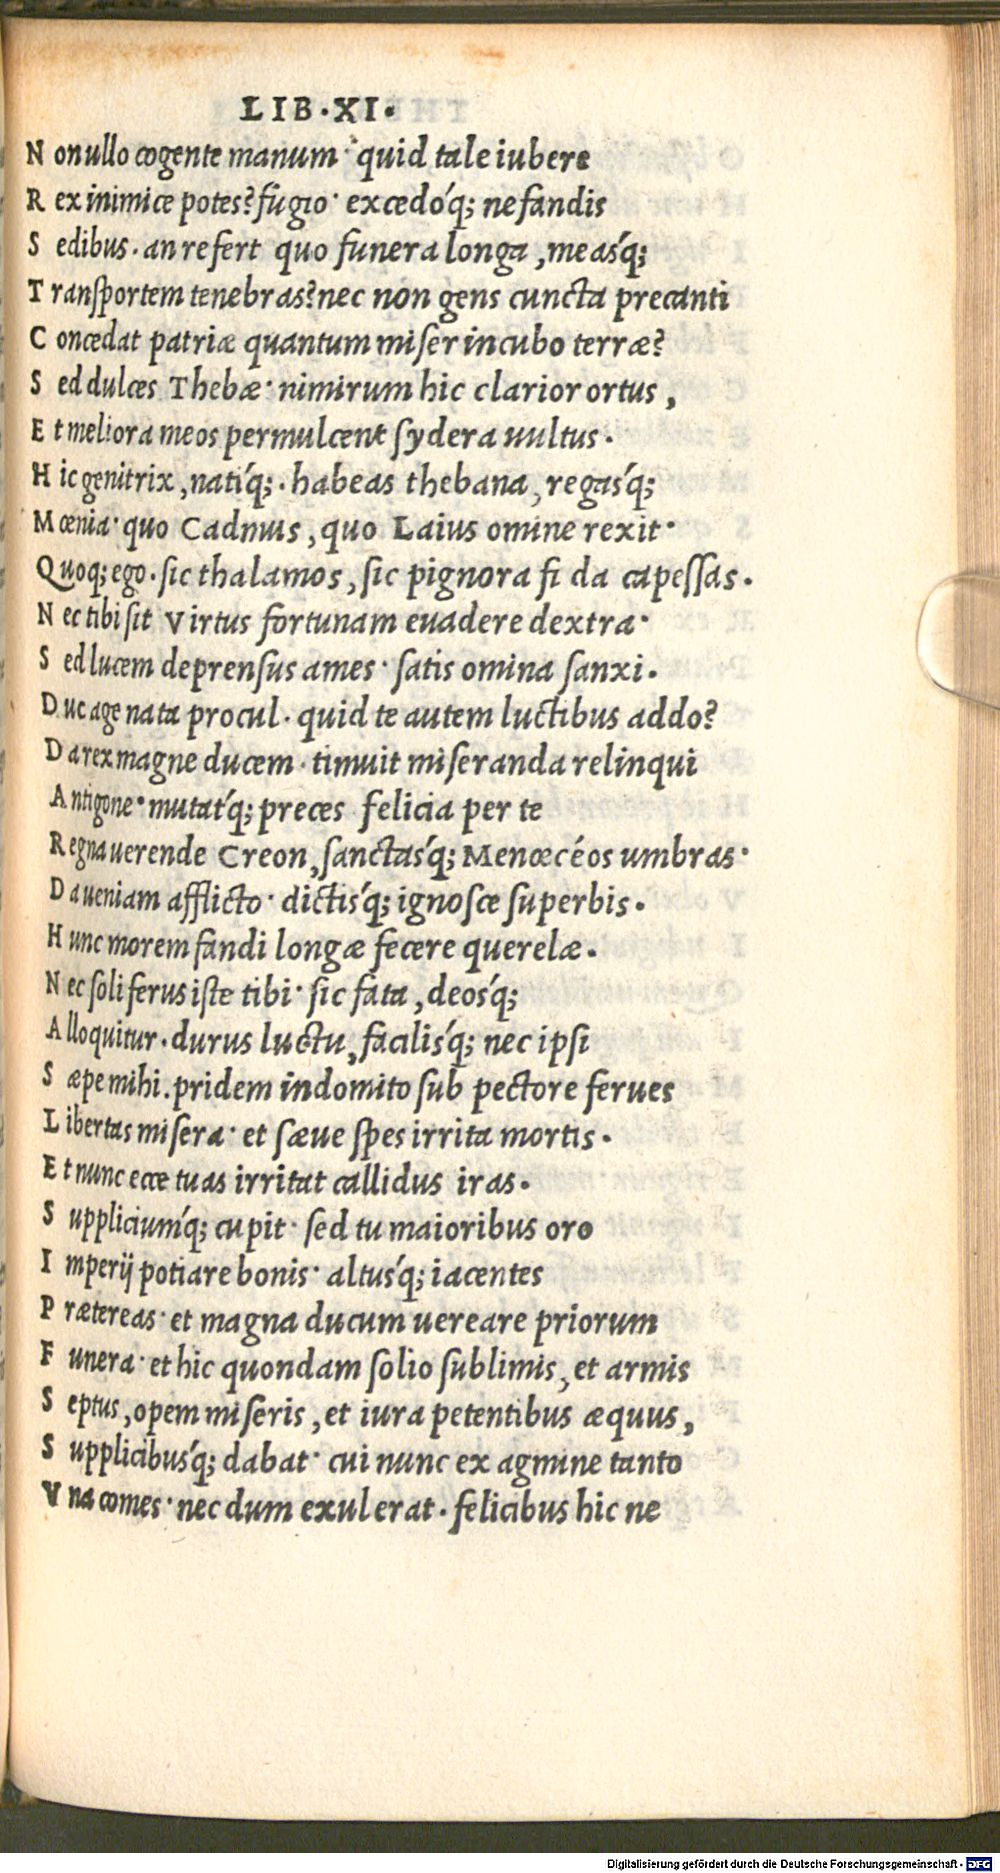 LIB·XI·
N on ullo cogente manum· quid tale iubere
R ex inimice potes? fugio· excedóq; nefandis
S edibus· an refert quo funera longa, measq́;
T ransportem tenebras? nec non gens cuncta precanti
C oncedat patriæ quantum miser incubo terræ?
S ed dulces Thebæ· nimirum hic clarior ortus,
E t meliora meos permulcent sydera uultus·
H ic genitrix, natiq́;· habeas thebana, regasq́;
M œnia· quo Cadmus, quo Laius omine rexit·
Q uoq; ego· sic thalamos, sic pignora fida capessas·
N ec tibi sit Virtus fortunam euadere dextra·
S ed lucem deprensus ames· satis omina sanxi·
D uc age nata procul· quid te autem luctibus addo?
D a rex magne ducem· timuit miseranda relinqui
A ntigone· mutatq́; preces felicia per te
R egna uerende Creon, sanctasq́; Menœcéos umbras·
D a ueniam afflicto· dictisq́; ignosce superbis·
H unc morem fandi longæ fecere querelæ·
N ec soli ferus iste tibi· sic fata, deosq́;
A lloquitur· durus luctu, facilisq́; nec ipsi
S æpe mihi· pridem indomito sub pectore ferues
L ibertas misera· et sæue spes irrita mortis·
E t nunc ecce tuas irritat callidus iras·
S uppliciumq́; cupit· sed tu maioribus oro
I mperij potiare bonis· altusq́; iacentes
P rætereas· et magna ducum uereare priorum
F unera· et hic quondam solio sublimis, et armis
S eptus, opem miseris, et iura petentibus æquus,
S upplicibusq́; dabat· cui nunc ex agmine tanto
V na comes· nec dum exul erat· felicibus hic ne
Digitalisierung gefördert durch die Deutsche Forschungsgemeinschaft - DFG